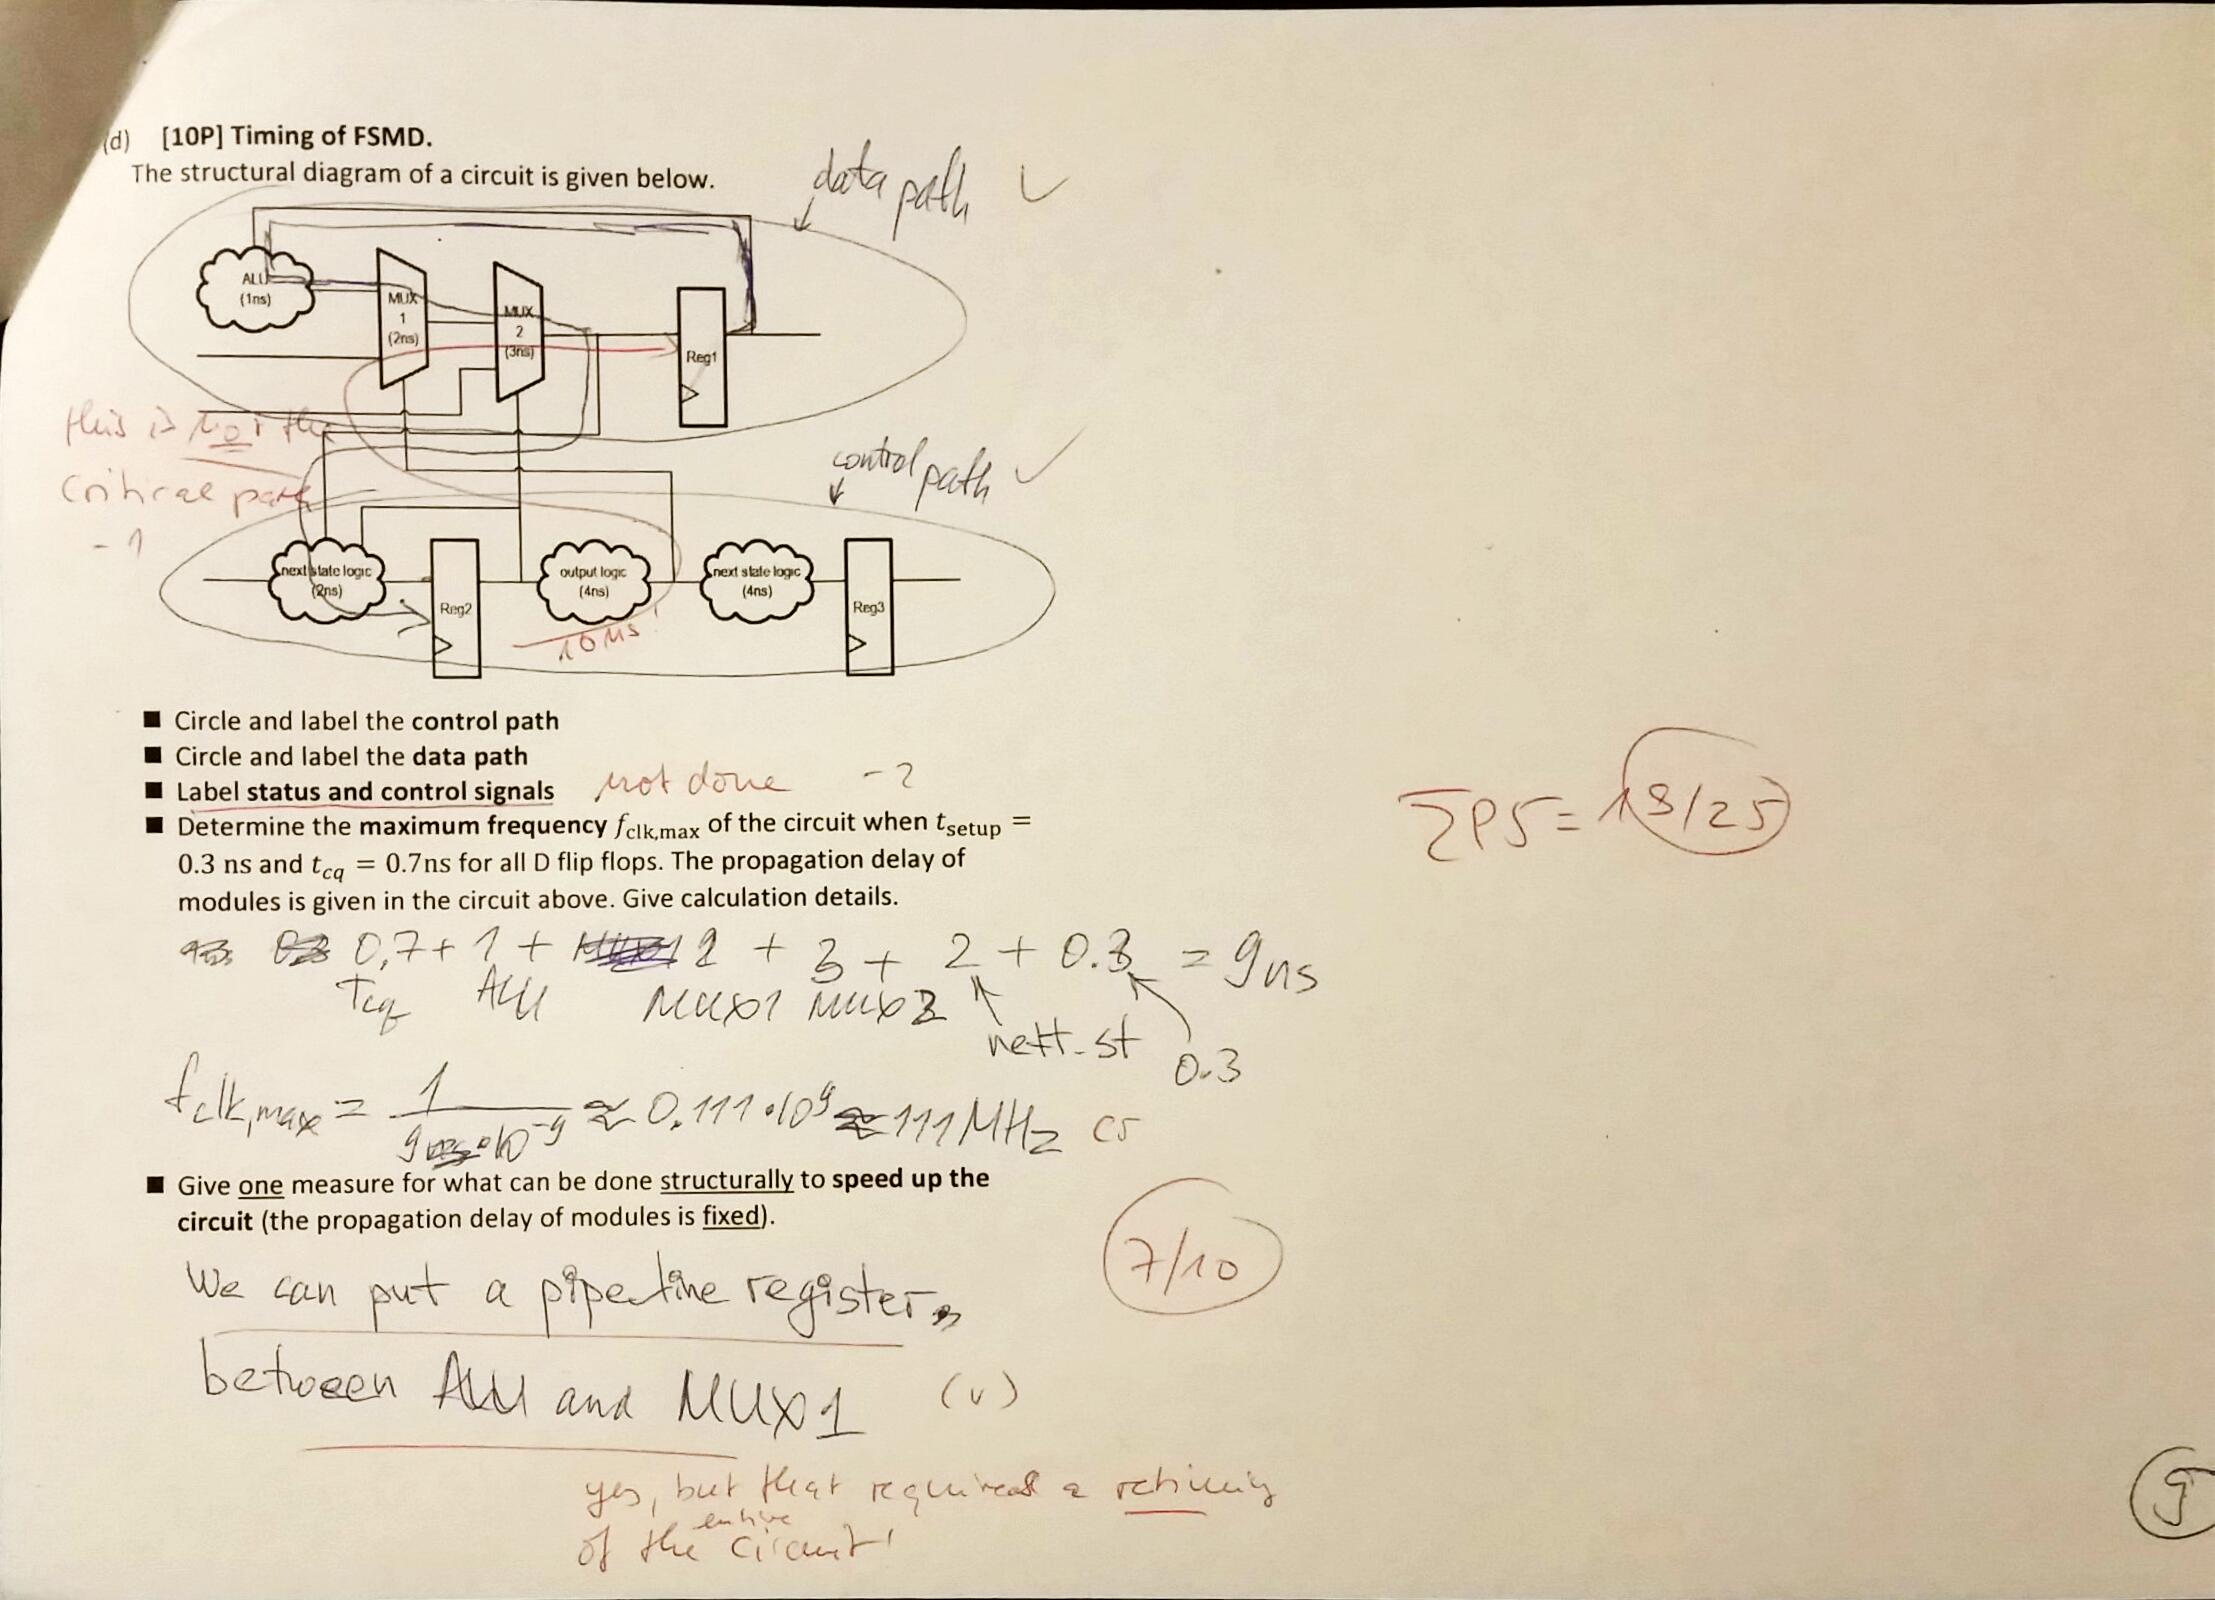 (d) [10P] Timing of FSMD.
The structural diagram of a circuit is given below.
data path ✓
ALU
(1ns)
MUX
1
(2ns)
MUX
2
(3ns)
Reg1
this is not the
critical path
-1
control path ✓
next state logic
(2ns)
Reg2
output logic
(4ns)
10ns!
next state logic
(4ns)
Reg3
■ Circle and label the control path
■ Circle and label the data path
■ Label status and control signals not done -2
■ Determine the maximum frequency fclk,max of the circuit when tsetup =
0.3 ns and tcq = 0.7ns for all D flip flops. The propagation delay of
modules is given in the circuit above. Give calculation details.
0,7 + 1 + 2 + 3 + 2 + 0.3 = 9ns
Tcq ALU MUX1 MUX2
next-st 0.3
fclk,max = 1 / 9·10^-9 ≈ 0.111·10^9 ≈ 111 MHz
■ Give one measure for what can be done structurally to speed up the
circuit (the propagation delay of modules is fixed).
We can put a pipeline register
between ALU and MUX1 (v)
7/10
yes, but that requires a retiming
of the entire circuit!
ΣP5 = 18/25
9